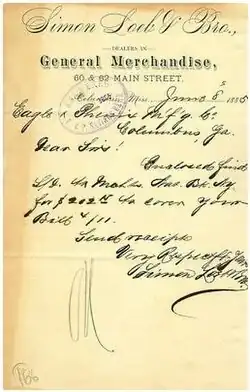 Simon Loeb & Bro.,
DEALERS IN
General Merchandise,
60 & 62 MAIN STREET,
Columbus, Miss., June 8 1885
Eagle & Phenix Mf'g Co
Columbus Ga.
Dear Sirs!
Enclosed find
for $202
to cover your
Bill 4/11.
Send receipt
Very Respectf
Simon Loeb & Bro